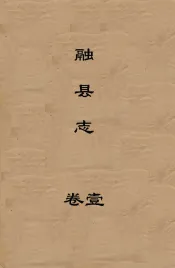 融县志
卷壹